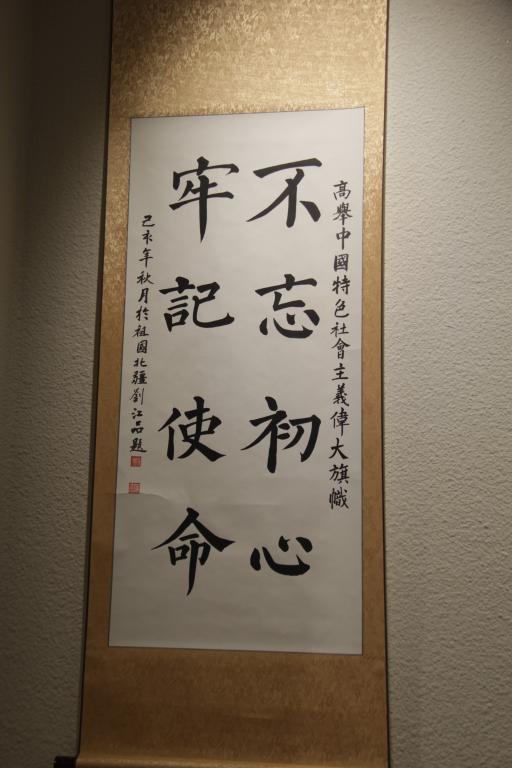 高舉中國特色社會主義偉大旗幟
不忘初心
牢記使命
己亥年秋月於祖國北疆劉江品題